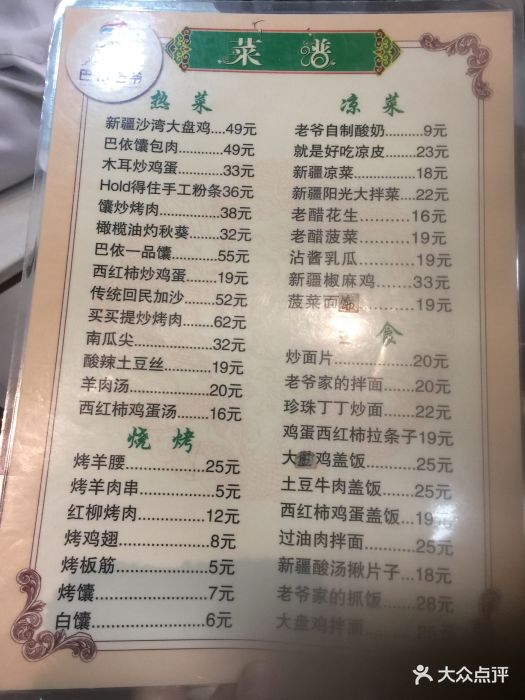 菜 谱
热 菜
新疆沙湾大盘鸡....49元
巴依馕包肉..........49元
木耳炒鸡蛋..........33元
Hold得住手工粉条36元
馕炒烤肉..............38元
橄榄油灼秋葵......32元
巴依一品馕..........55元
西红柿炒鸡蛋......19元
传统回民加沙......52元
买买提炒烤肉......62元
南瓜尖..................32元
酸辣土豆丝..........19元
羊肉汤..................20元
西红柿鸡蛋汤......16元
烧 烤
烤羊腰................25元
烤羊肉串..............5元
红柳烤肉............12元
烤鸡翅..................8元
烤板筋..................5元
烤馕......................7元
白馕......................6元
凉 菜
老爷自制酸奶........9元
就是好吃凉皮......23元
新疆凉菜..............18元
新疆阳光大拌菜...22元
老醋花生..............16元
老醋菠菜..............19元
沾酱乳瓜..............19元
新疆椒麻鸡..........33元
菠菜面..............19元
食
炒面片..................20元
老爷家的拌面......20元
珍珠丁丁炒面......22元
鸡蛋西红柿拉条子19元
大盘鸡盖饭..........25元
土豆牛肉盖饭......25元
西红柿鸡蛋盖饭...19元
过油肉拌面..........25元
新疆酸汤揪片子...18元
老爷家的抓饭......28元
大盘鸡拌面..........25元
大众点评